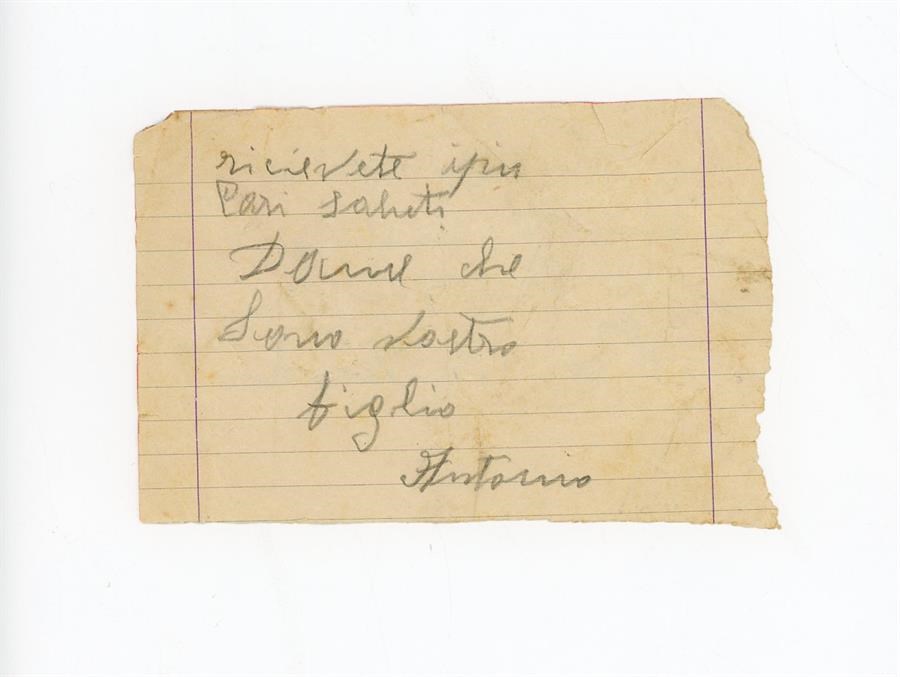 ricievete ipiu
Cari saluti
Dame che
Sono vostro
figlio
Antonio